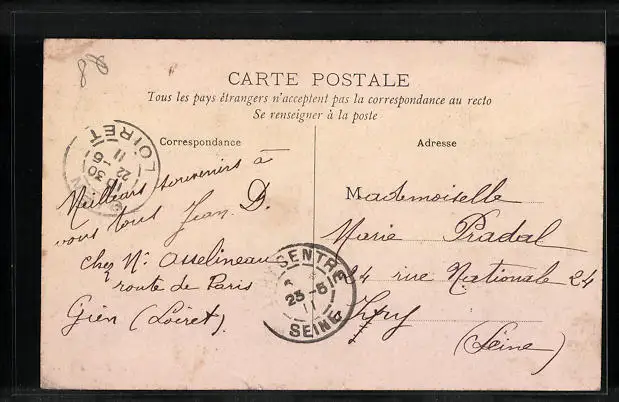 CARTE POSTALE
Tous les pays étrangers n'acceptent pas la correspondance au recto
Se renseigner à la poste
Correspondance
Meilleurs souvenirs à
vous tous Jean. D.
chez Mr Asselineau
route de Paris
Gien (Loiret).
LOIRET
22 -5
11
SENTRE
23 -5
11
SEINE
Adresse
Mademoiselle
Marie Pradal
24 rue Nationale 24
Ivry
(Seine)